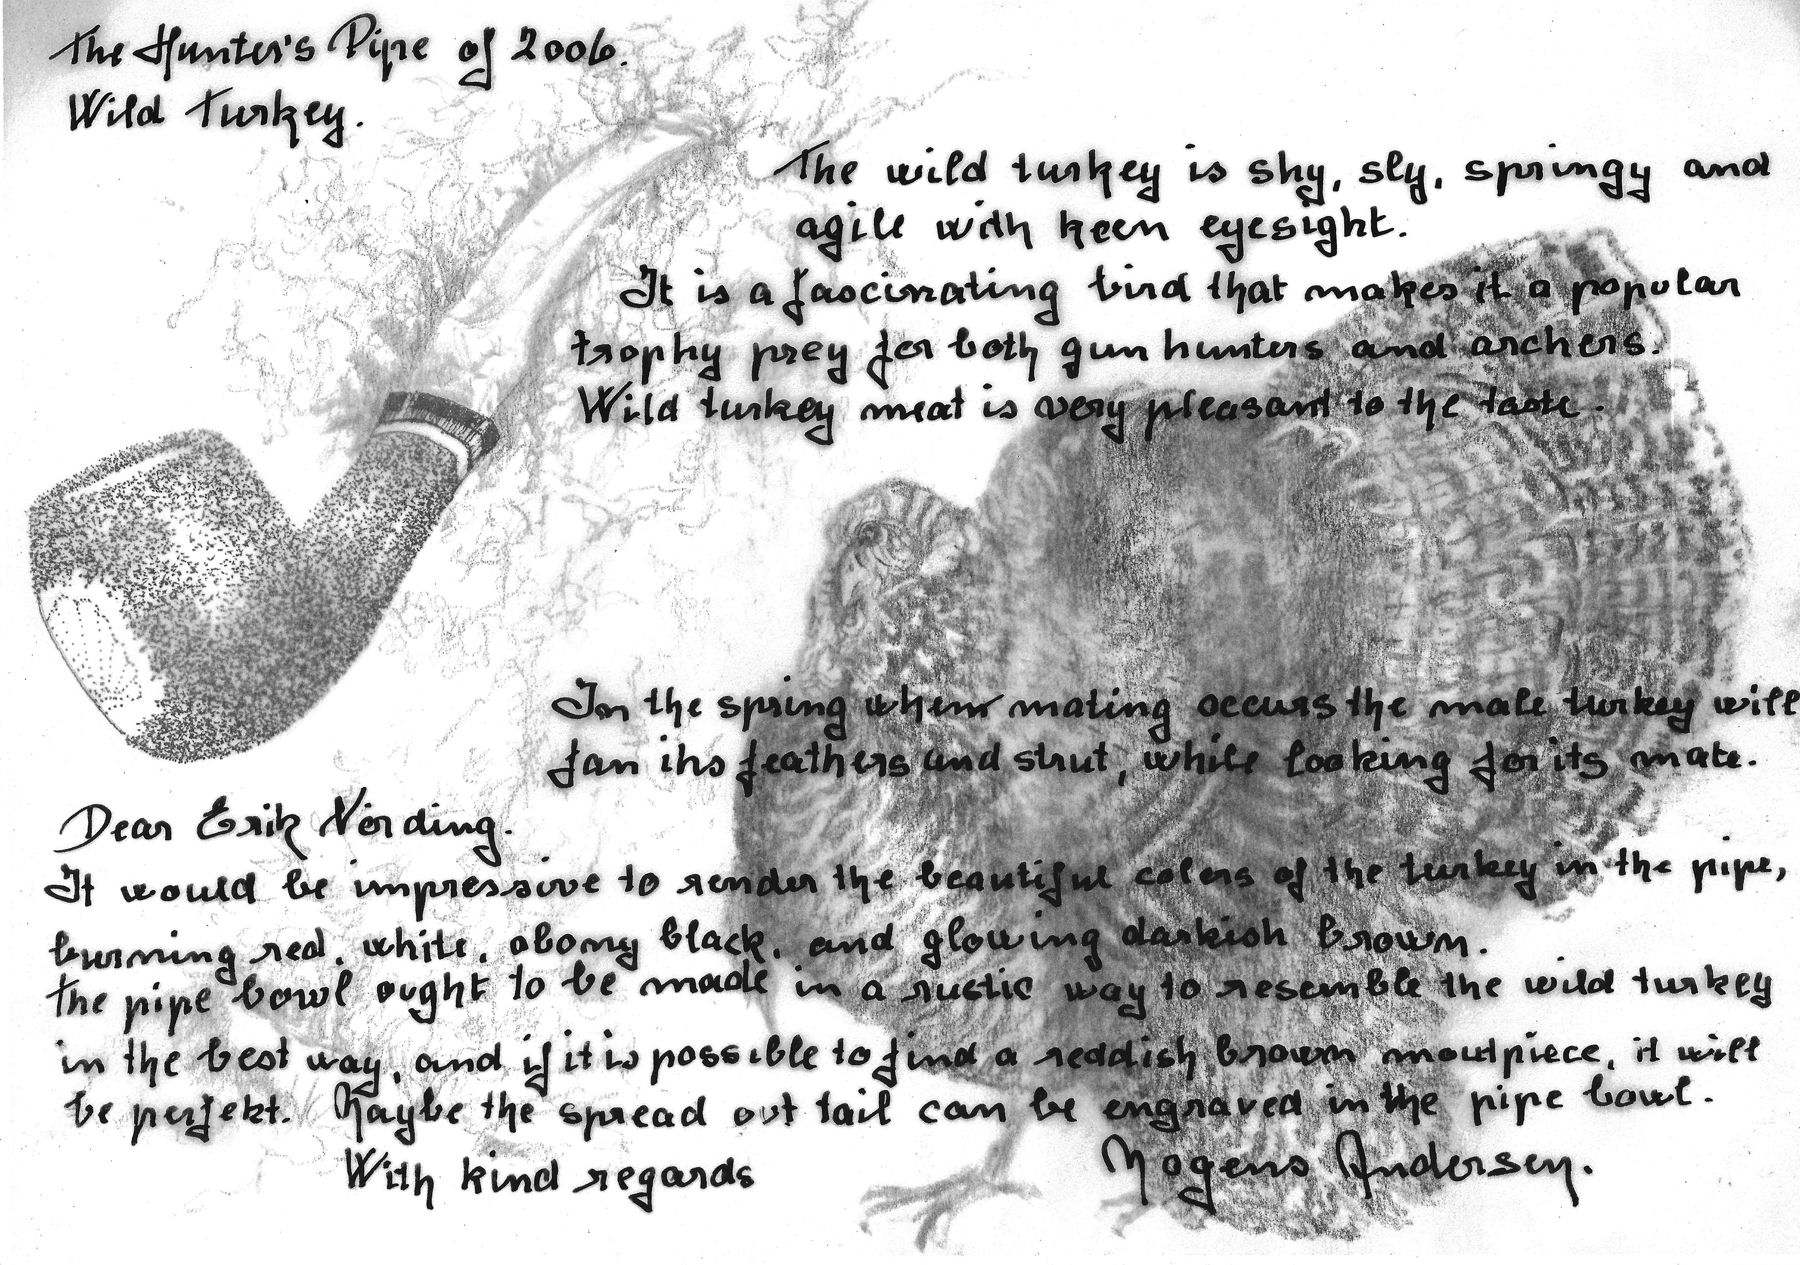 The Hunter's Pipe of 2006.
Wild Turkey.
The wild turkey is shy, sly, springy and
agile with keen eyesight.
It is a fascinating bird that makes it a popular
trophy prey for both gun hunters and archers.
Wild turkey meat is very pleasant to the taste.
In the spring when mating occurs the male turkey will
fan its feathers and strut, while looking for its mate.
Dear Erik Nørding.
It would be impressive to render the beautiful colors of the turkey in the pipe,
burning red, white, obony black, and glowing darkish brown.
The pipe bowl ought to be made in a rustic way to resemble the wild turkey
in the best way, and if it is possible to find a reddish brown moutpiece, it will
be perfekt. Maybe the spread out tail can be engraved in the pipe bowl.
With kind regards Mogens Andersen.